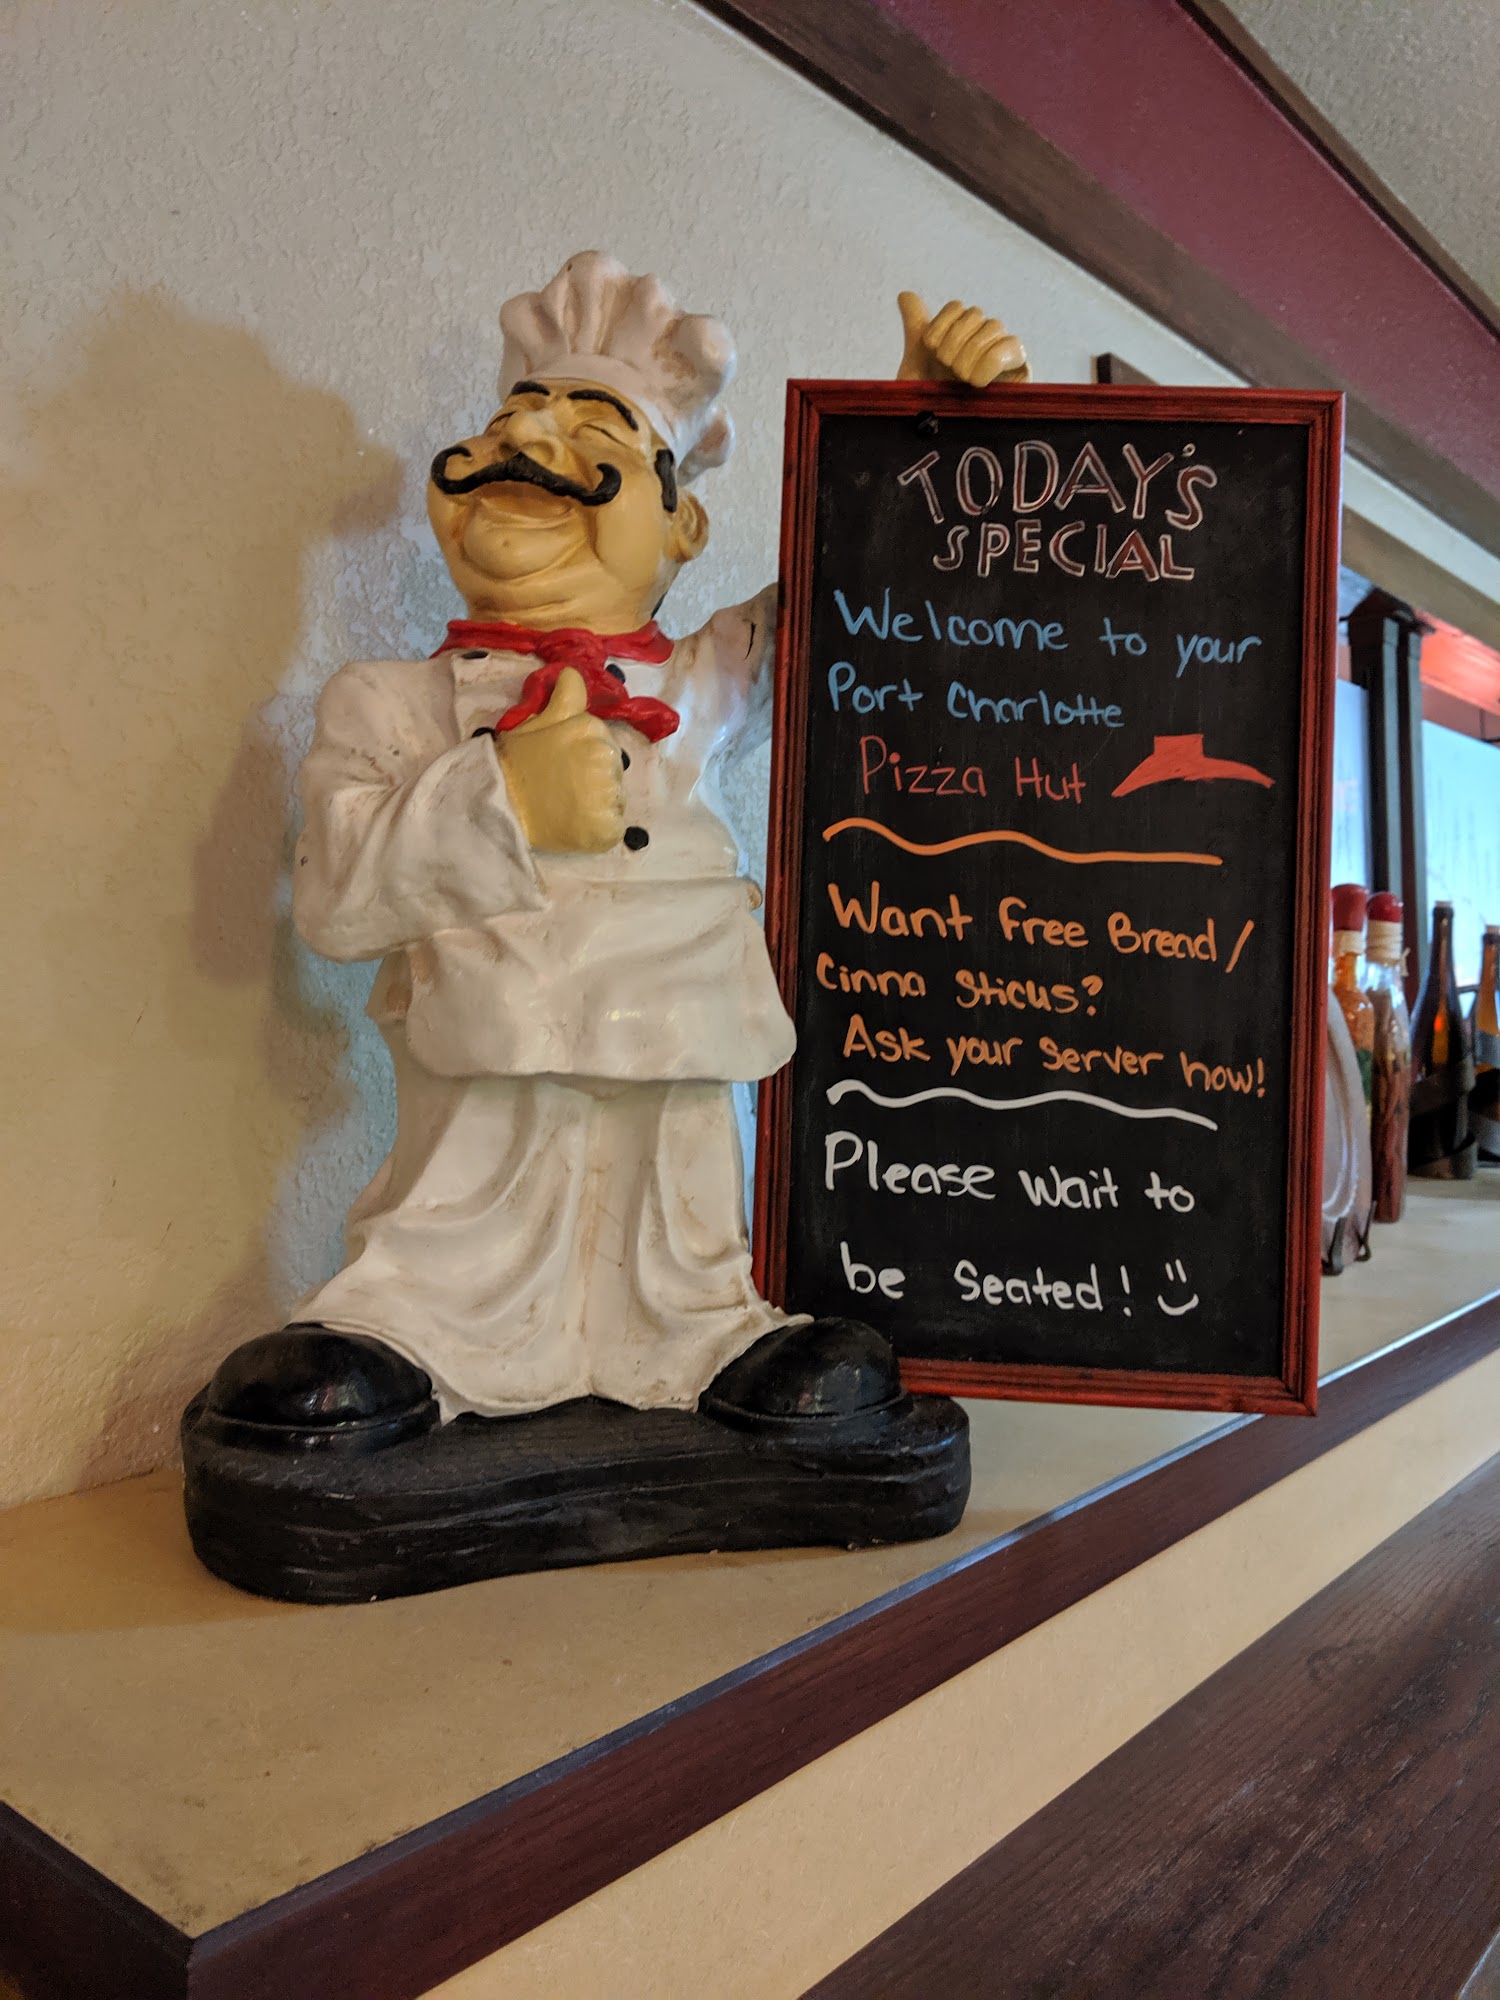 TODAY'S
SPECIAL
Welcome to your
Port Charlotte
Pizza Hut
Want free Bread/
Cinna Sticks?
Ask your server how!
Please wait to
be seated!